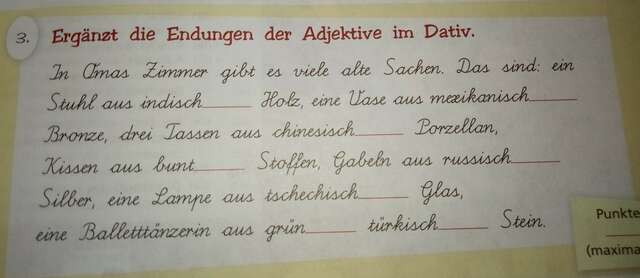 3. Ergänzt die Endungen der Adjektive im Dativ.
In Omas Zimmer gibt es viele alte Sachen. Das sind: ein
Stuhl aus indisch______ Holz, eine Vase aus mexikanisch______
Bronze, drei Tassen aus chinesisch______ Porzellan,
Kissen aus bunt______ Stoffen, Gabeln aus russisch______
Silber, eine Lampe aus tschechisch______ Glas,
eine Balletttänzerin aus grün______ türkisch______ Stein.
Punkte
(maxima